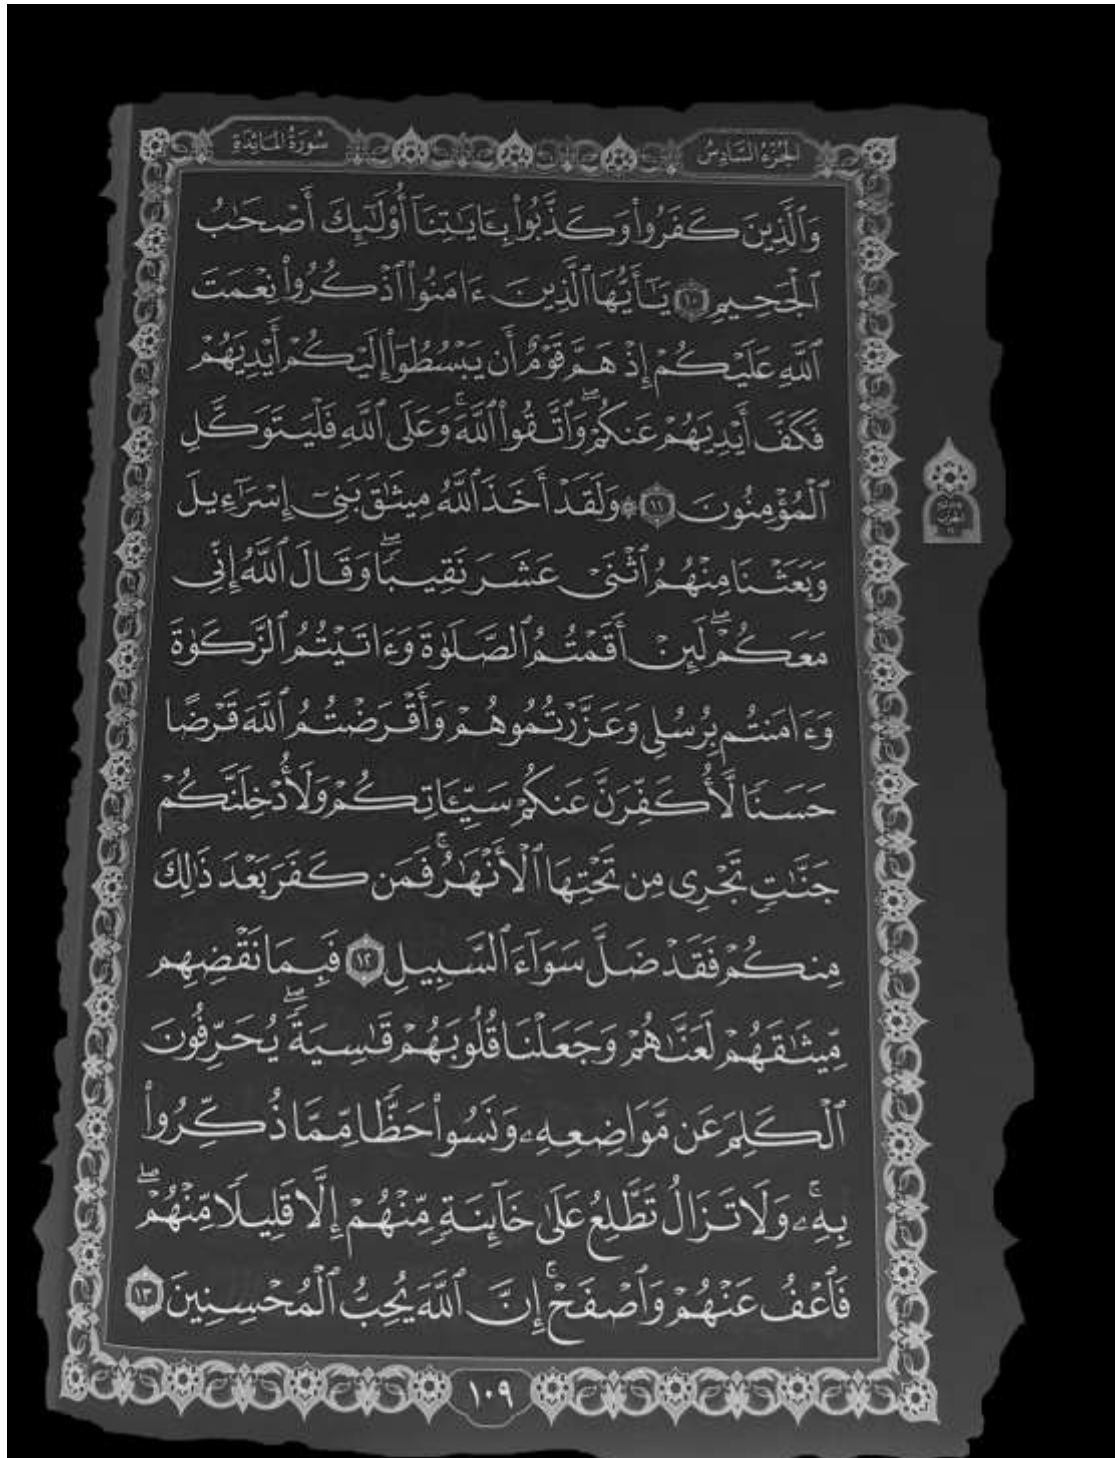 الجُزْءُ السَّادِسُ
سُورَةُ المَائِدَةِ
وَٱلَّذِينَ كَفَرُواْ وَكَذَّبُواْ بِـَٔايَٰتِنَآ أُوْلَٰٓئِكَ أَصْحَٰبُ
ٱلْجَحِيمِ ١٠ يَٰٓأَيُّهَا ٱلَّذِينَ ءَامَنُواْ ٱذْكُرُواْ نِعْمَتَ
ٱللَّهِ عَلَيْكُمْ إِذْ هَمَّ قَوْمٌ أَن يَبْسُطُوٓاْ إِلَيْكُمْ أَيْدِيَهُمْ
فَكَفَّ أَيْدِيَهُمْ عَنكُمْۖ وَٱتَّقُواْ ٱللَّهَۚ وَعَلَى ٱللَّهِ فَلْيَتَوَكَّلِ
ٱلْمُؤْمِنُونَ ١١ ۞ وَلَقَدْ أَخَذَ ٱللَّهُ مِيثَٰقَ بَنِيٓ إِسْرَٰٓءِيلَ
وَبَعَثْنَا مِنْهُمُ ٱثْنَيْ عَشَرَ نَقِيبٗاۖ وَقَالَ ٱللَّهُ إِنِّي
مَعَكُمْۖ لَئِنْ أَقَمْتُمُ ٱلصَّلَوٰةَ وَءَاتَيْتُمُ ٱلزَّكَوٰةَ
وَءَامَنتُم بِرُسُلِي وَعَزَّرْتُمُوهُمْ وَأَقْرَضْتُمُ ٱللَّهَ قَرْضًا
حَسَنٗا لَّأُكَفِّرَنَّ عَنكُمْ سَيِّـَٔاتِكُمْ وَلَأُدْخِلَنَّكُمْ
جَنَّٰتٖ تَجْرِي مِن تَحْتِهَا ٱلْأَنْهَٰرُۚ فَمَن كَفَرَ بَعْدَ ذَٰلِكَ
مِنكُمْ فَقَدْ ضَلَّ سَوَآءَ ٱلسَّبِيلِ ١٢ فَبِمَا نَقْضِهِم
مِّيثَٰقَهُمْ لَعَنَّٰهُمْ وَجَعَلْنَا قُلُوبَهُمْ قَٰسِيَةٗۖ يُحَرِّفُونَ
ٱلْكَلِمَ عَن مَّوَاضِعِهِۦ وَنَسُواْ حَظّٗا مِّمَّا ذُكِّرُواْ
بِهِۦۚ وَلَا تَزَالُ تَطَّلِعُ عَلَىٰ خَآئِنَةٖ مِّنْهُمْ إِلَّا قَلِيلٗا مِّنْهُمْۖ
فَٱعْفُ عَنْهُمْ وَٱصْفَحْۚ إِنَّ ٱللَّهَ يُحِبُّ ٱلْمُحْسِنِينَ ١٣
١٠٩